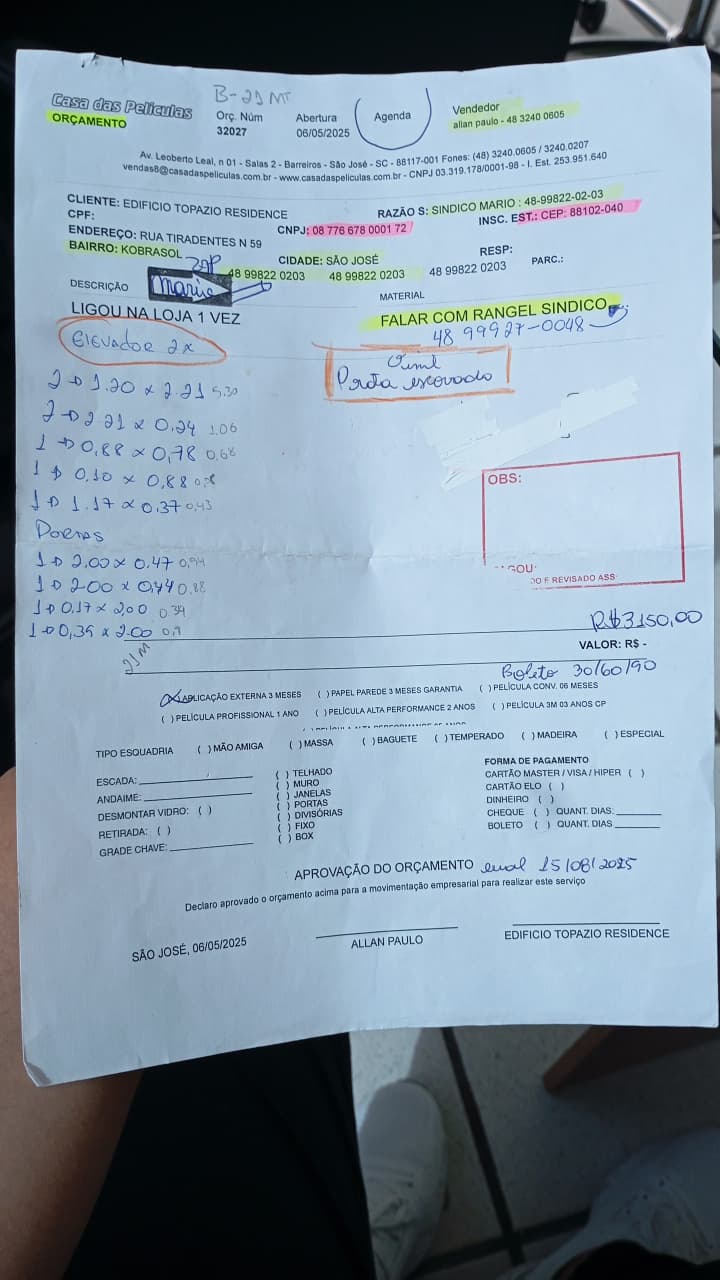 B-21 MT
Casa das Películas
ORÇAMENTO
Orç. Núm
32027
Abertura
06/05/2025
Agenda
Vendedor
allan paulo - 48 3240 0605
Av. Leoberto Leal, n 01 - Salas 2 - Barreiros - São José - SC - 88117-001 Fones: (48) 3240.0605 / 3240.0207
vendas8@casadaspeliculas.com.br - www.casadaspeliculas.com.br - CNPJ 03.319.178/0001-98 - I. Est. 253.951.640
CLIENTE: EDIFICIO TOPAZIO RESIDENCE RAZÃO S: SINDICO MARIO : 48-99822-02-03
CPF: CNPJ: 08 776 678 0001 72 INSC. EST.: CEP: 88102-040
ENDEREÇO: RUA TIRADENTES N 59
BAIRRO: KOBRASOL CIDADE: SÃO JOSÉ RESP:
48 99822 0203 48 99822 0203 48 99822 0203 PARC.:
DESCRIÇÃO Mario MATERIAL
LIGOU NA LOJA 1 VEZ FALAR COM RANGEL SINDICO
48 99927-0048
Elevador 2x
Prata escovado
2 → 1.20 x 2.21 5,30
2 → 2 21 x 0,24 1.06
1 → 0,88 x 0,78 0,68
1 → 0,10 x 0,88
1 → 1.17 x 0,37 0,43
OBS:
GOU:
DO E REVISADO ASS
Portas
1 → 2,00 x 0,47 0,94
1 → 2.00 x 0,44 0,88
1 → 0,17 x 2,00 0,34
1 → 0,35 x 2.00 0,7
R$ 3150,00
VALOR: R$ -
21 M
Boleto 30/60/90
(X) APLICAÇÃO EXTERNA 3 MESES ( ) PAPEL PAREDE 3 MESES GARANTIA ( ) PELÍCULA CONV. 06 MESES
( ) PELÍCULA PROFISSIONAL 1 ANO ( ) PELÍCULA ALTA PERFORMANCE 2 ANOS ( ) PELÍCULA 3M 03 ANOS CP
TIPO ESQUADRIA ( ) MÃO AMIGA ( ) MASSA ( ) BAGUETE ( ) TEMPERADO ( ) MADEIRA ( ) ESPECIAL
ESCADA:
ANDAIME:
DESMONTAR VIDRO: ( )
RETIRADA: ( )
GRADE CHAVE:
( ) TELHADO
( ) MURO
( ) JANELAS
( ) PORTAS
( ) DIVISÓRIAS
( ) FIXO
( ) BOX
FORMA DE PAGAMENTO
CARTÃO MASTER / VISA / HIPER ( )
CARTÃO ELO ( )
DINHEIRO ( )
CHEQUE ( ) QUANT. DIAS:
BOLETO ( ) QUANT. DIAS
APROVAÇÃO DO ORÇAMENTO 15/08/2025
Declaro aprovado o orçamento acima para a movimentação empresarial para realizar este serviço
SÃO JOSÉ, 06/05/2025
ALLAN PAULO
EDIFICIO TOPAZIO RESIDENCE